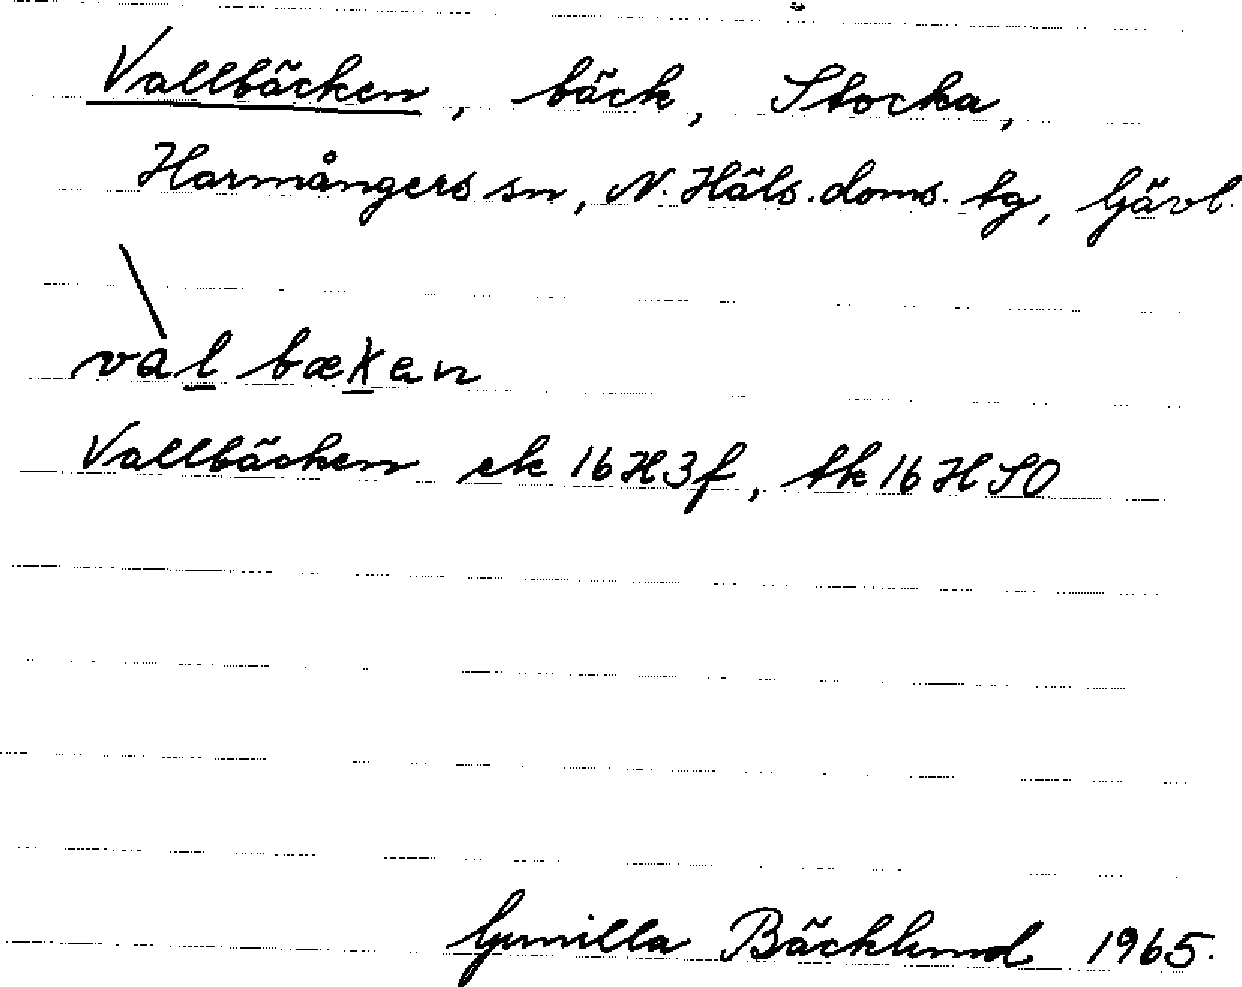 Vallbäcken, bäck, Stocka,
Harmångers sn, N. Häls. doms. tg, Gävl.
\
val bækan
Vallbäcken ek 16H3f, tk 16H SO
Gunilla Bäcklund 1965.